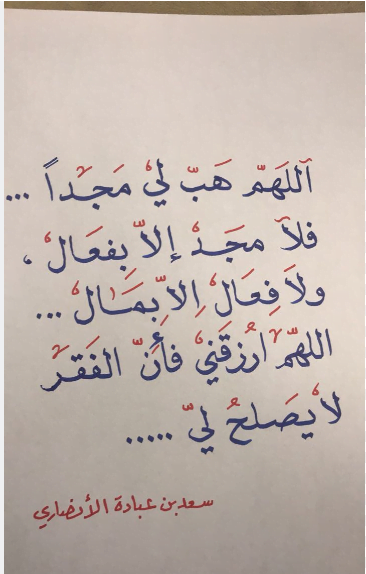 اللَّهَمّ هَبّ ليْ مَجداً ...
فلاَ مجَدْ إلاّ بِفعَال ،
ولاَ فِعَال إلاّ بِمَال ...
اللهّم ارُزقَنيْ فأَنّ الفَقرَ
لاَ يَصَلحُ ليّ .....
سعد بن عبادة الأنصاري